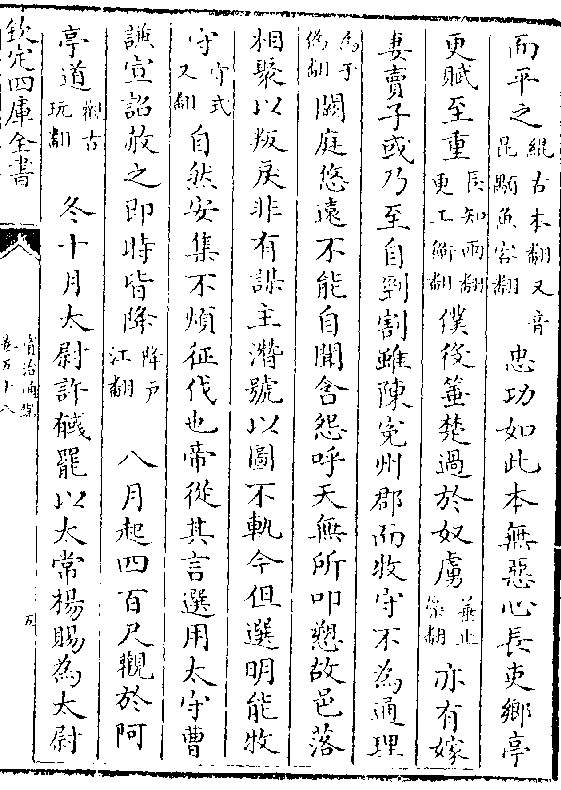 而平之緄古本翻又音昆顒魚容翻忠功如此本無惡心長吏鄉亭
更賦至重長知兩翻更工衡翻僕役箠楚過於奴虜箠止橤翻亦有嫁
妻賣子或乃至自剄割雖陳寃州郡而牧守不為通理
為于偽翻闕庭悠遠不能自聞含怨呼天無所叩愬故邑落
相聚以叛戾非有謀主潛號以圖不軌今但選明能牧
守守式又翻自然安集不煩征伐也帝從其言選用太守曹
謙宣詔赦之即時皆降降户江翻 八月起四百尺觀於阿
亭道觀古玩翻 冬十月太尉許戫罷以太常楊賜為太尉
欽定四庫全書
資治通鑑
卷五十八
九